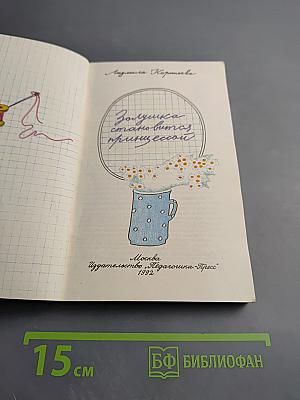 Людмила Корнилова
Золушка
становится
принцессой
Москва
Издательство „Педагогика-Пресс"
1992
15 см
БФ БИБЛИОФАН